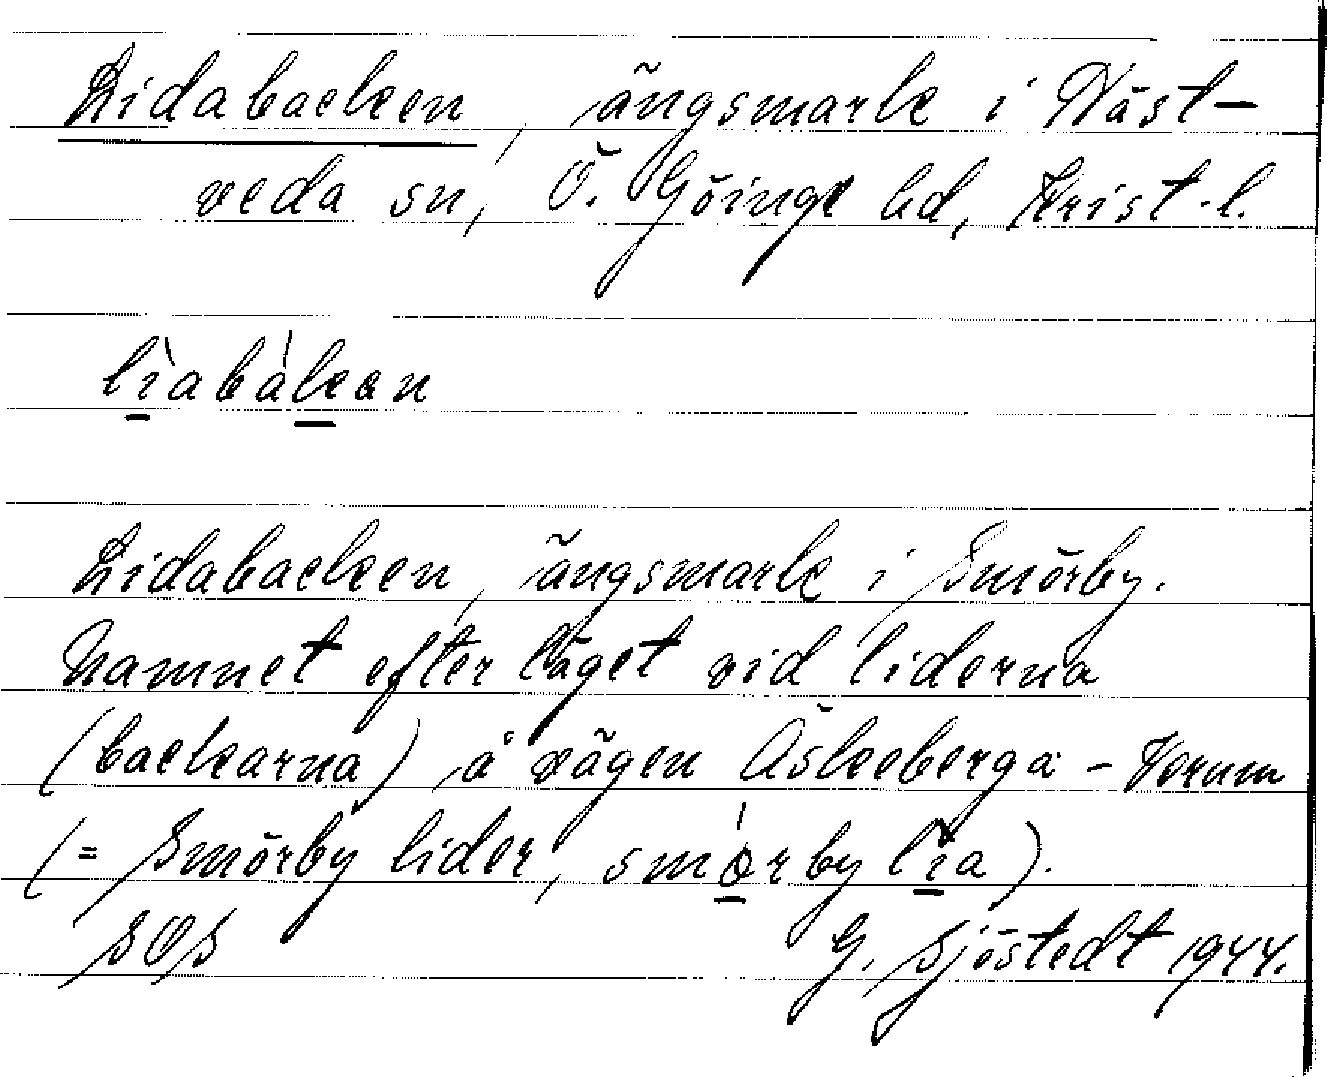 Lidabacken, ängsmark i Näst-
veda sn, Ö. Göinge hd, Krist. l.
lìabàkən
Lidabacken, ängsmark i Smörby.
Namnet efter läget vid liderna
(backarna) å vägen Äskeberga - Verum
(= Smörby lider, smörby lìa).
SOS G. Sjöstedt 1944.